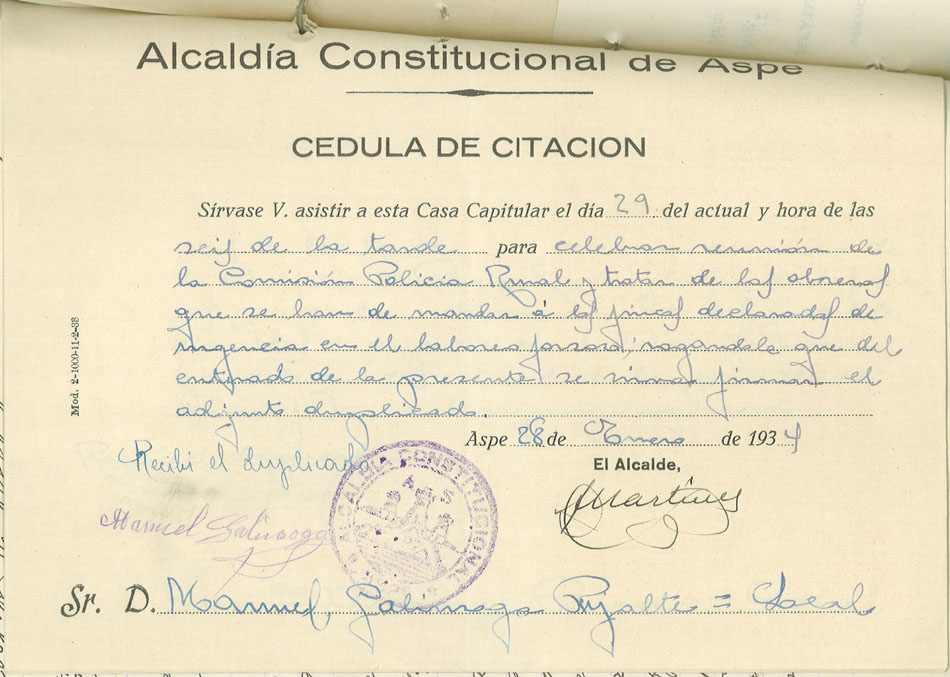 Alcaldía Constitucional de Aspe
CEDULA DE CITACION
Sírvase V. asistir a esta Casa Capitular el día 29 del actual y hora de las
seis de la tarde para celebrar reunión de
la Comisión Policia Rural y tratar de los obreros
que se han de mandar á las fincas declaradas de
urgencia en el laboreo forzoso, rogandole que del
enterado de la presente se sirva firmar el
adjunto duplicado.
Aspe 28 de Enero de 1934
Mod. 2-1000-11-2-33
Recibi el duplicado
El Alcalde,
Martinez
Manuel Galinsoga
ALCALDIA CONSTITUCIONAL
Sr. D. Manuel Galinsoga = Local